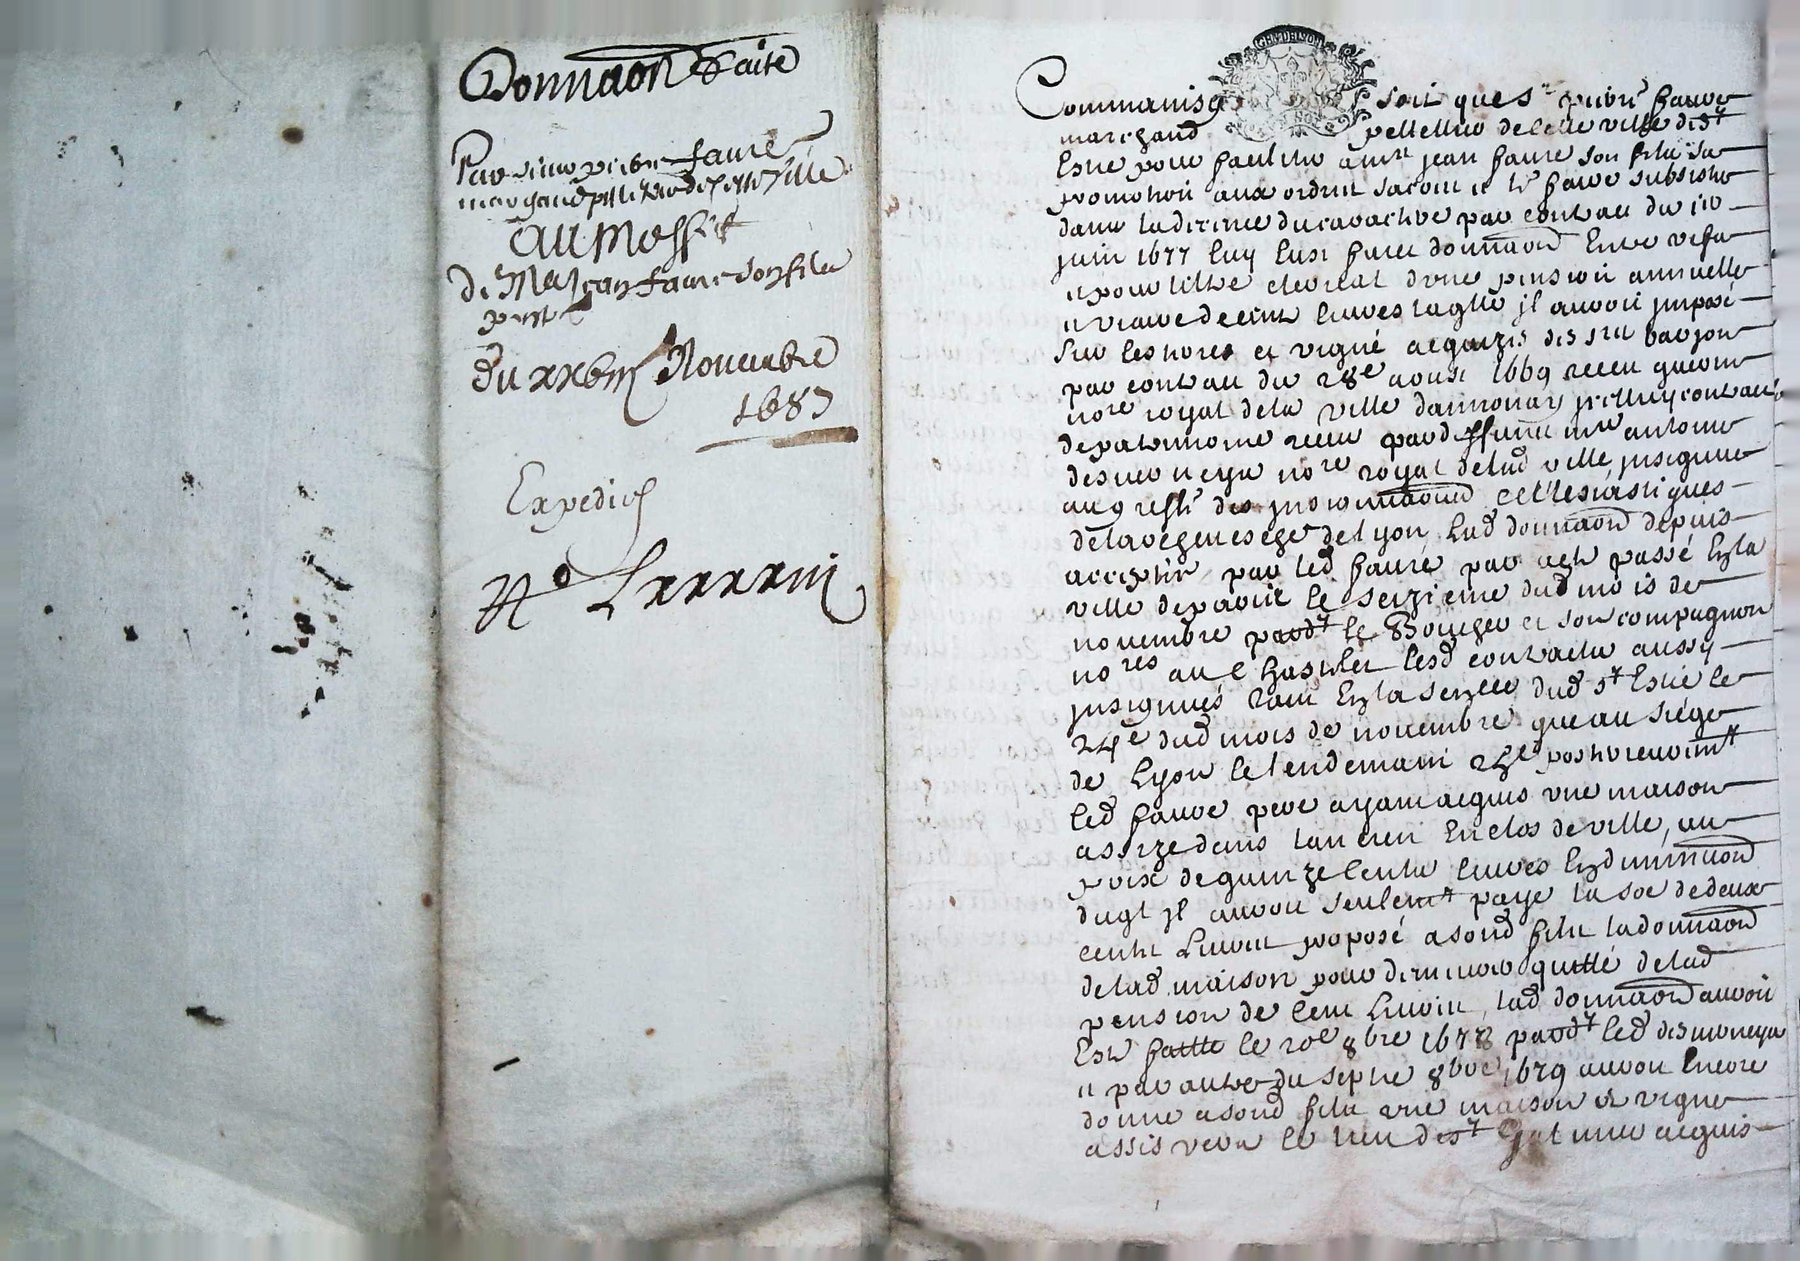 Donnaon faite
Par sieur pierre faure
marchand pelletier de cette ville
au
de Me Jean faure son filz
du xxbm Novembre
1687
Expediée
N° Lxxxxiii
Comme ainsy soit que sr pierre faure
marchand pelletier de cette ville de st
Este pour faciliter a mre jean faure son filz sa
promotion aux ordres sacrés et le faire subsister
dans la decence du caractere par contrau du
juin 1677 luy eust faict donnaon entre vifz
et pour tiltre clerical dune pension annuelle
et viagere de cent livres laqlle il auroit imposé
sur les et vigne acquizes des srs
par contrau du 28e aoust 1669 receu
nore royal de la ville dannonay icelluy contract
de patrimoine receu par deffunct mre antoine
desverneys nore royal de lad ville, insignué
au greffe des insignnaons ecclesiastiques
de lyon, lad donnaon depuis
acceptée par led faure par acte passé en la
ville de paris le seizieme dud mois de
novembre pardt le Bourger et son compagnon
nores au chastelet lesd contracts aussy
insignués tant en la senée dud st Este le
24e dud mois de novembre que au siége
de Lyon le lendemain 25e posterieuremt
led faure pere ayant acquis une maison
assize dans lancien enclos de ville, au
prix de quinze cents livres en diminuaon
duql il auroit seulemt payé la soe de deux
cents livres proposé a sond filz la donnaon
de lad maison pour demeurer quitte de lad
pension de cent livres, lad donnaon auroit
esté faitte le 20e 8bre 1678 pardt led
et par autre du septe 8bre 1679 auroit encore
donné a sond filz une maison et vigne
assis vers le lieu de st acquis